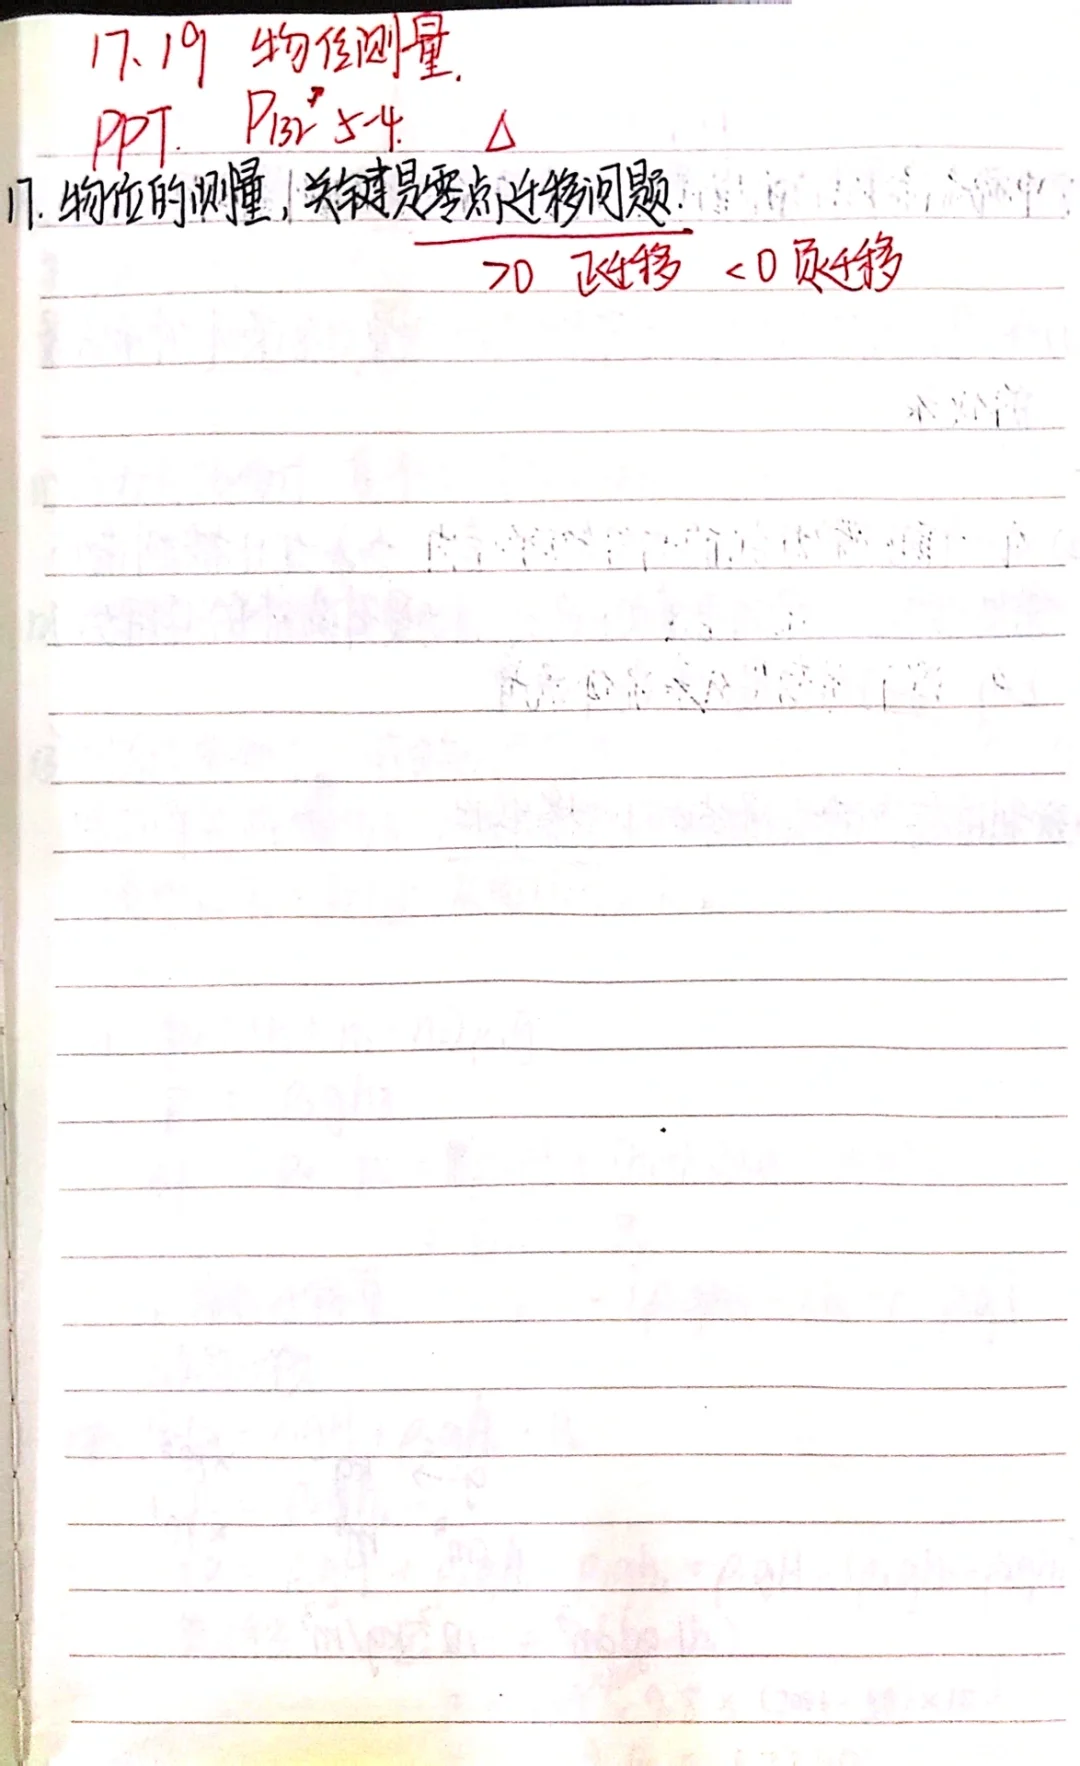 17、19 物位测量.
PPT. P132 5-4. △
17. 物位的测量,关键是零点迁移问题.
>0 正迁移 <0 负迁移